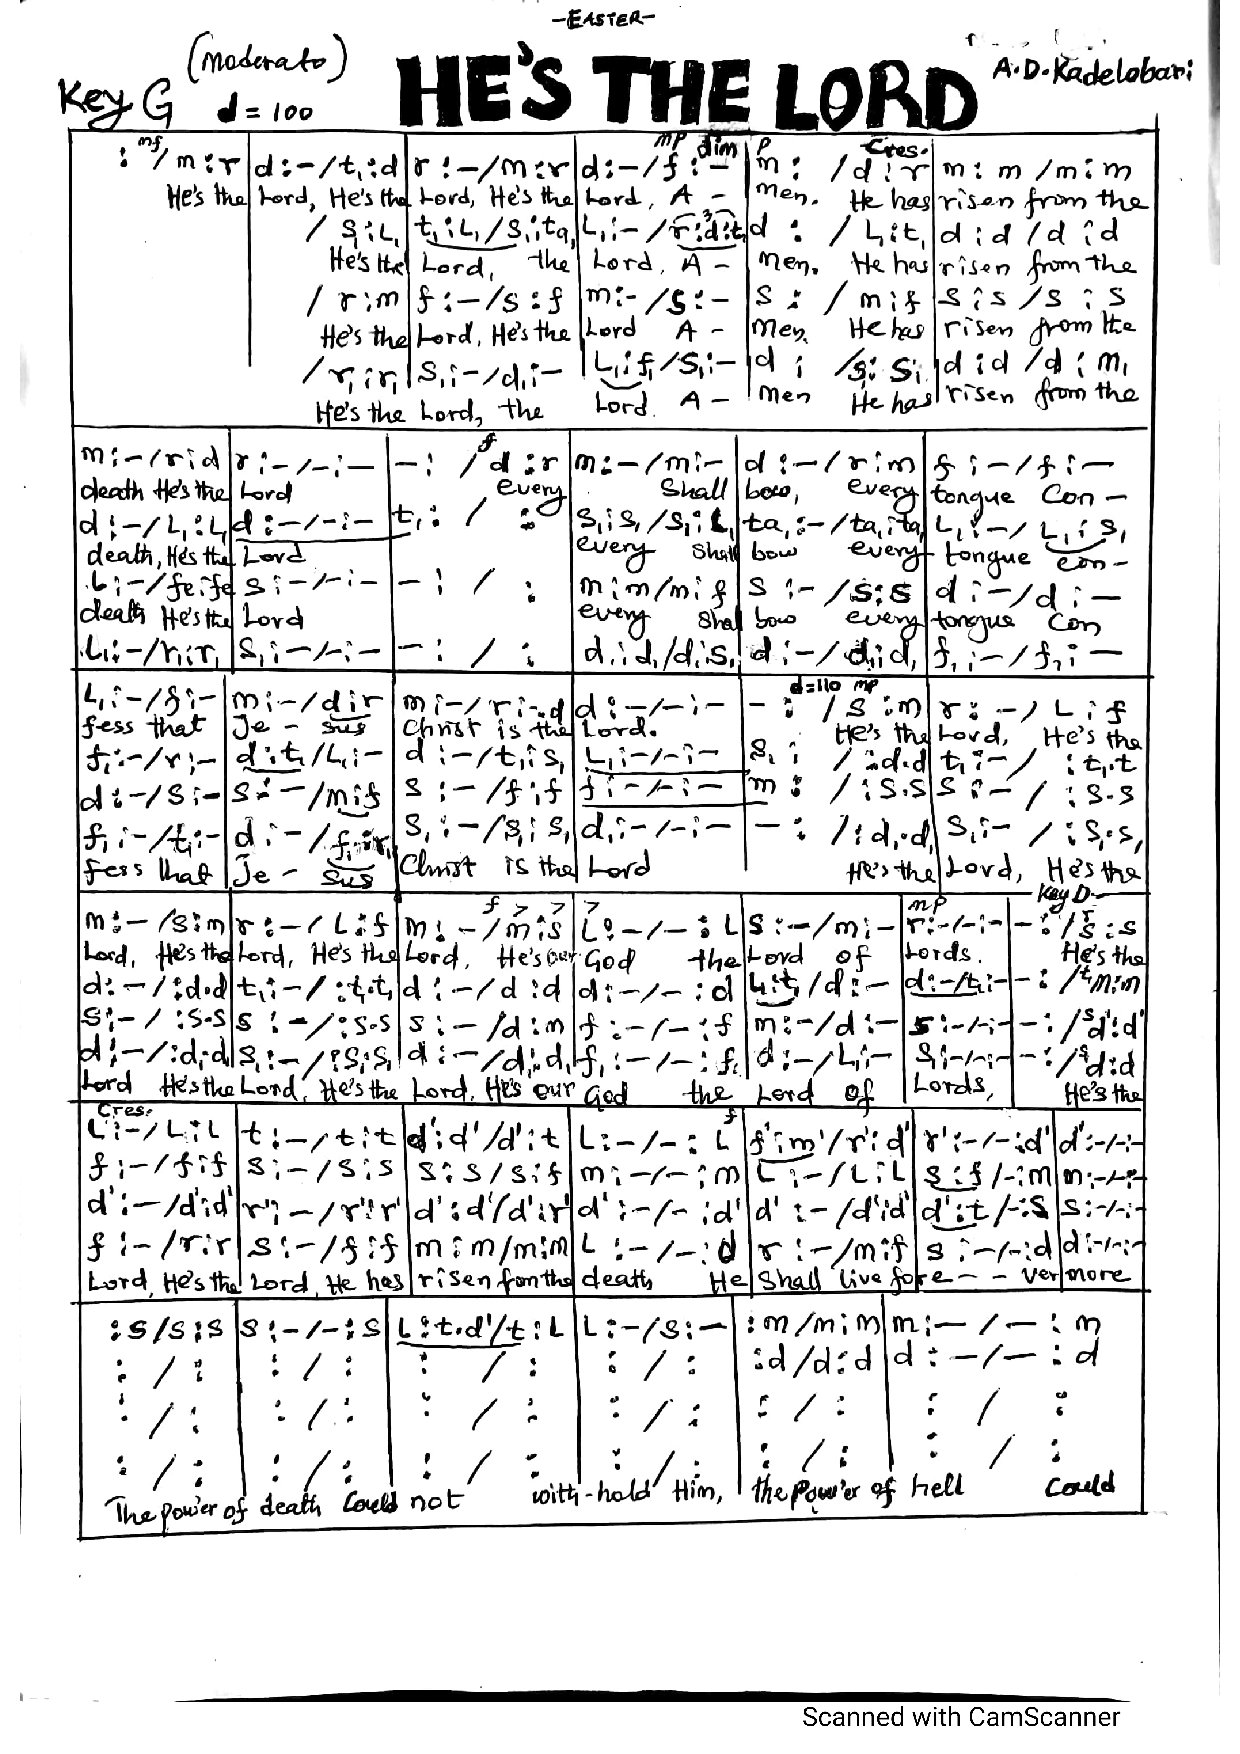 -EASTER-
(Moderato)
Key G d = 100
HE'S THE LORD
A.D. Kadelobari
mf mp dim p Cres.
: / m:r | d:-/t,:d | r:-/m:r | d:-/f:- | m: /d:r | m:m/m:m
He's the Lord, He's the Lord, He's the Lord, A - men. He has risen from the
/ s,:l, | t,:l,/s,:ta, | l,:-/r:d:t, | d : / l,:t, | d:d/d:d
He's the Lord, the Lord, A - men. He has risen from the
/ r:m | f:-/s:f | m:-/s:- | s : / m:f | s:s/s:s
He's the Lord, He's the Lord A - Men, He has risen from the
/ r,:r, | s,:-/d,:- | l,:f,/s,:- | d : /s,:s, | d:d/d:m,
He's the Lord, the Lord. A - men He has risen from the
f
m:-/r:d | r:-/-:- | -: /d:r | m:-/m:- | d:-/r:m | f:-/f:-
death He's the Lord every Shall bow, every tongue Con -
d:-/l,:l, | d:-/-:- | t,: / : | s,:s,/s,:l, | ta,:-/ta,:ta, | l,:-/l,:s,
death, He's the Lord every Shall bow every tongue con -
l:-/fe:fe | s:-/-:- | -: / : | m:m/m:f | s:-/s:s | d:-/d:-
death He's the Lord every Shal bow every tongue Con
l,:-/r,:r, | s,:-/-:- | -: / : | d,:d,/d,:s, | d:-/d,:d, | f,:-/f,:-
d=110 mp
l,:-/f:- | m:-/d:r | m:-/r:-.d | d:-/-:- | -: /s:m | r:-/l:f
fess that Je - sus Christ is the Lord. He's the Lord, He's the
f,:-/r:- | d:t,/l,:- | d:-/t,:s, | l,:-/-:- | s,: / :d.d | t,:-/ :t,.t
d:-/s:- | s:-/m:f | s:-/f:f | f:-/-:- | m: / :s.s | s:-/ :s.s
f,:-/t,:- | d:-/f,:r, | s,:-/s,:s, | d,:-/-:- | -: / :d,.d, | s,:-/ :s,.s,
fess that Je - sus Christ is the Lord He's the Lord, He's the
f > > > mp Key D
m:-/s:m | r:-/l:f | m:-/m:s | l:-/-:l | s:-/m:- | r:-/-:- | -:/s:s
Lord, He's the Lord, He's the Lord, He's our God the Lord of Lords. He's the
d:-/:d.d | t,:-/:t,.t, | d:-/d:d | d:-/-:d | l,:t,/d:- | d:-/t,:- | -:/m:m
s:-/:s.s | s:-/:s.s | s:-/d:m | f:-/-:f | m:-/d:- | s:-/-:- | -:/d':d'
d:-/:d,.d | s,:-/:s,.s, | d:-/d,:d, | f,:-/-:f, | d:-/l,:- | s,:-/-:- | -:/d:d
Lord He's the Lord, He's the Lord, He's our God the Lord of Lords, He's the
Cres. f
l:-/l:l | t:-/t:t | d':d'/d':t | l:-/-:l | f':m'/r':d' | r':-/-:d' | d':-/-:-
f:-/f:f | s:-/s:s | s:s/s:f | m:-/-:m | l:-/l:l | s:f/-:m | m:-/-:-
d':-/d':d' | r':-/r':r' | d':d'/d':r' | d':-/-:d' | d':-/d':d' | d':t/-:s | s:-/-:-
f:-/r:r | s:-/f:f | m:m/m:m | l:-/-:d | r:-/m:f | s:-/-:d | d:-/-:-
Lord, He's the Lord, He has risen fom the death, He Shall live fore - - ver more
:s/s:s | s:-/-:s | l:t.d'/t:l | l:-/s:- | :m/m:m | m:-/-:m
: / : | : / : | : / : | : / : | :d/d:d | d:-/-:d
: / : | : / : | : / : | : / : | : / : | : / :
: / : | : / : | : / : | : / : | : / : | : / :
The Power of death Could not with-hold Him, the Power of hell Could
Scanned with CamScanner